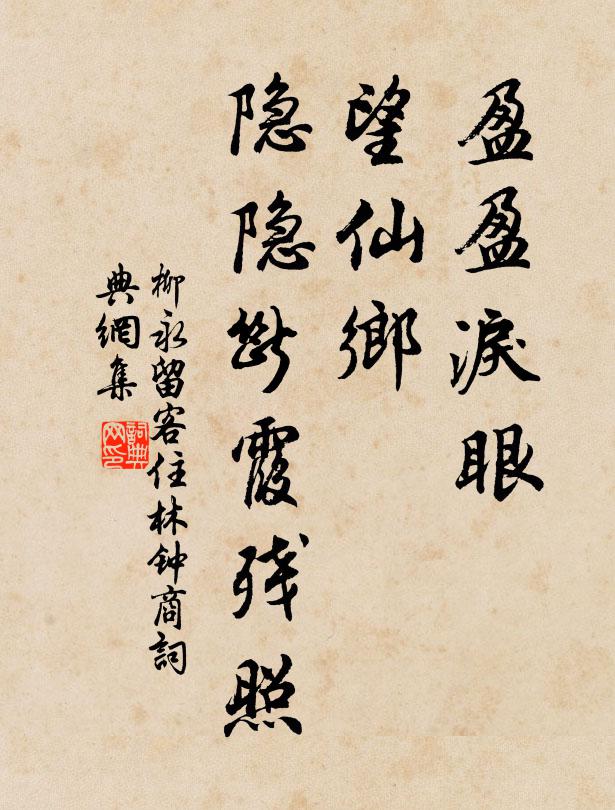 盈盈淚眼
望仙鄉
隐隐斷霞残照
柳永留客住林钟商詞
典網集
詞典
网印